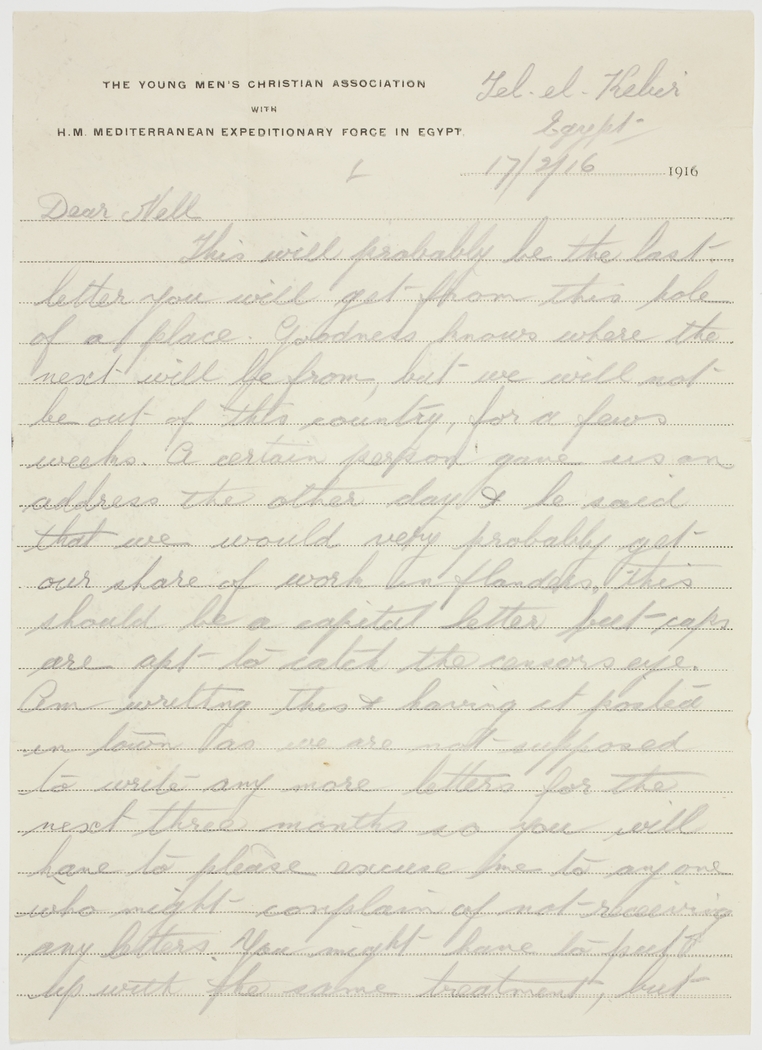 THE YOUNG MEN'S CHRISTIAN ASSOCIATION
WITH
H.M. MEDITERRANEAN EXPEDITIONARY FORCE IN EGYPT.
Tel-el-Kebir
Egypt
17/2/16 1916
Dear Nell
This will probably be the last
letter you will get from this hole
of a place. Goodness knows where the
next will be from, but we will not
be out of this country, for a fews
weeks. A certain person gave us an
address the other day & he said
that we would very probably get
our share of work in flanders, this
should be a capital letter but caps
are apt to catch the censors eye.
Am writing this & having it posted
in town as we are not supposed
to write any more letters for the
next three months so you will
have to please excuse me to anyone
who might complain of not receiving
any letters. You might have to put
up with the same treatment, but